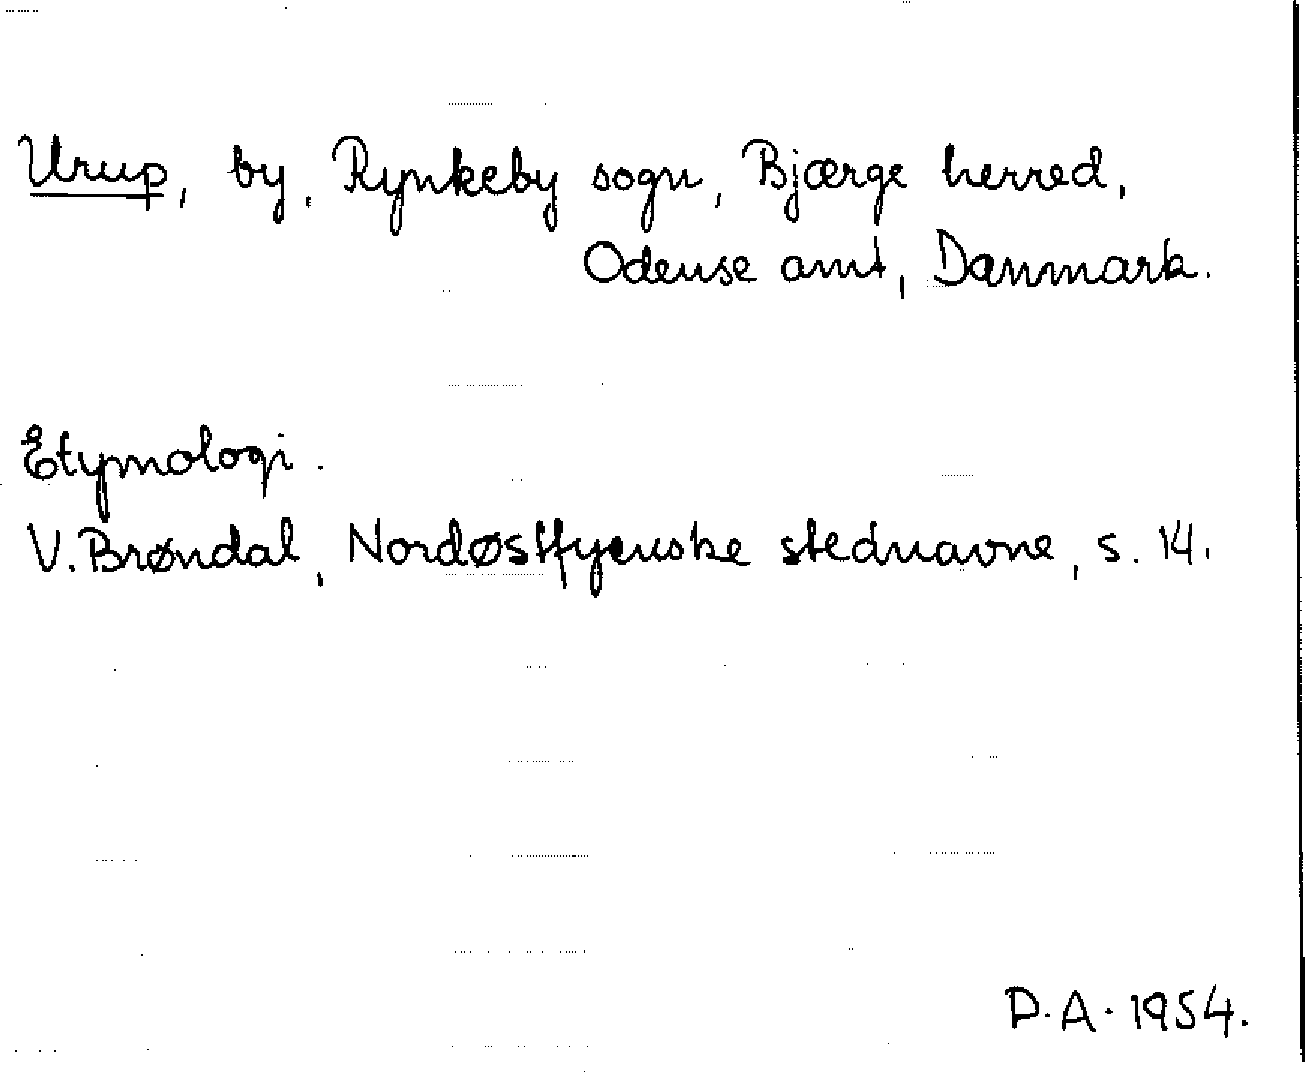 Urup, by, Rynkeby sogn, Bjærge herred,
Odense amt, Danmark.
Etymologi.
V. Brøndal, Nordøstfyenske stednavne, s. 14.
D.A. 1954.